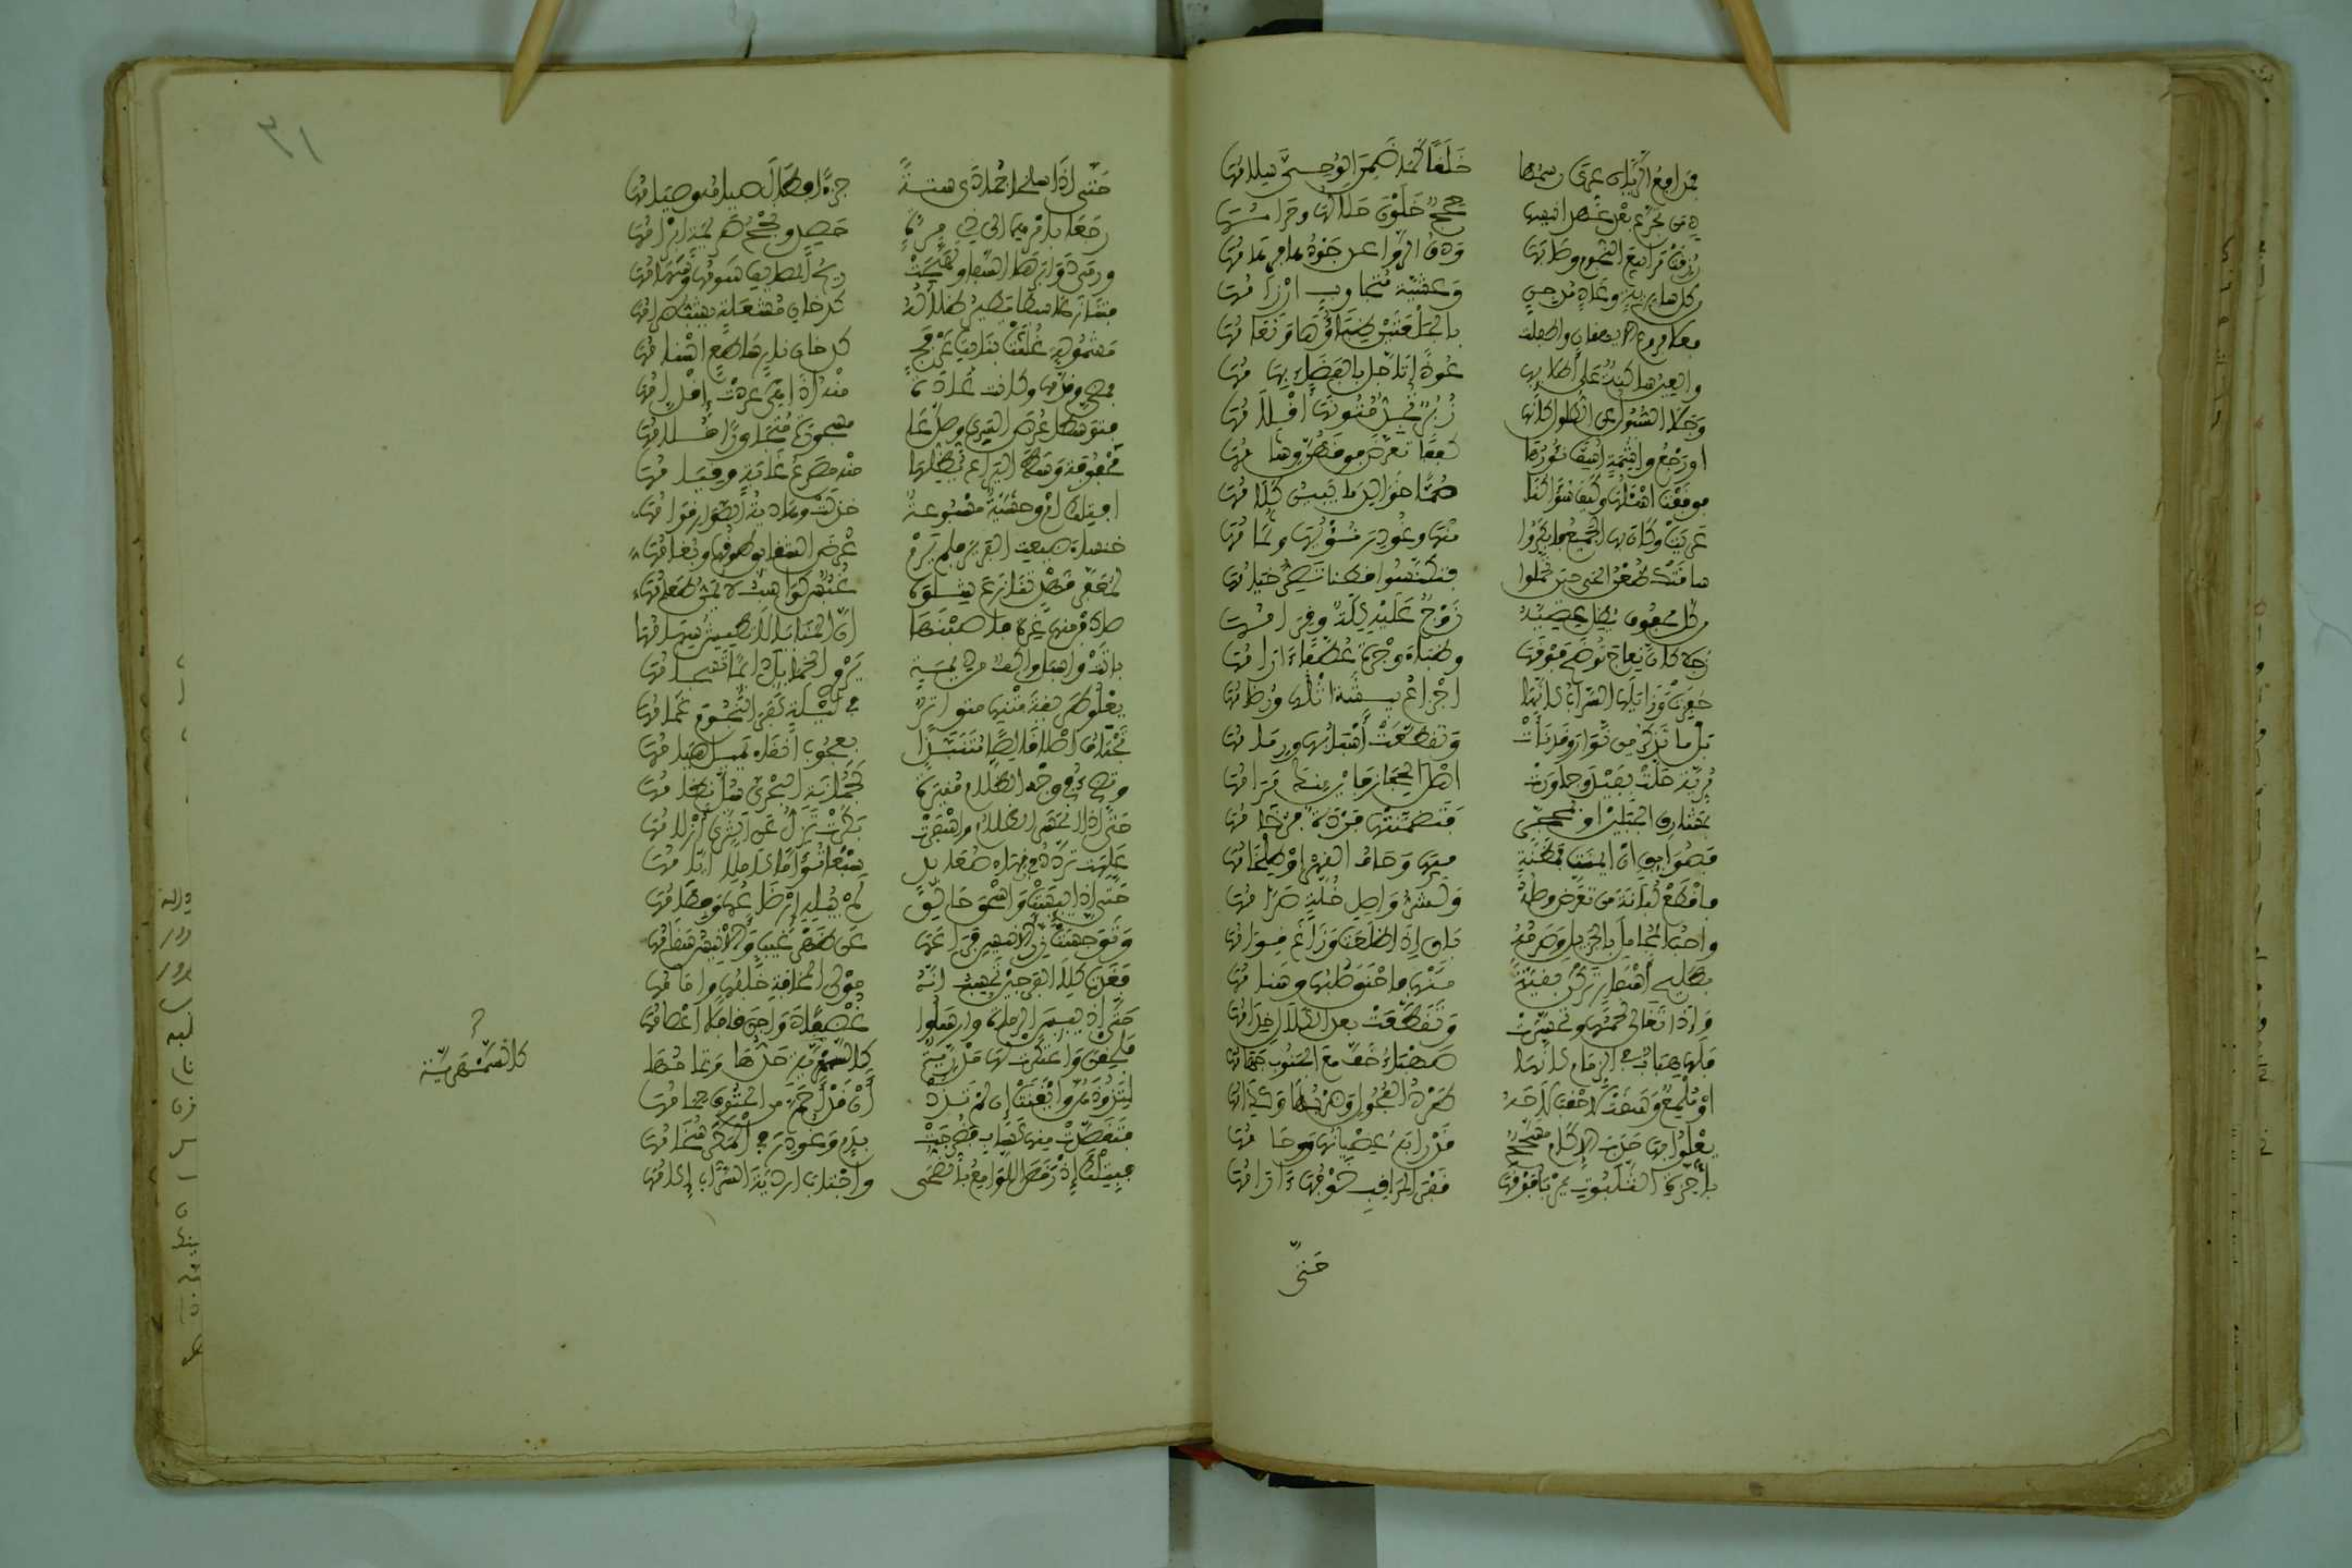 فمدافع الريان عري رسمها خلقا كما ضمن الوحي سلامها
دمن تجرم بعد عهد أنيسها حجج خلون حلالها وحرامها
رزقت مرابيع النجوم وصابها ودق الرواعد جودها فرهامها
من كل سارية وغاد مدجن وعشية متجاوب ارزامها
فعلا فروع الايهقان واطفلت بالجلهتين ظباؤها ونعامها
والعين ساكنة على أطلائها عوذا تأجل بالفضاء بهامها
وجلا السيول عن الطلول كأنها زبر تجد متونها أقلامها
او رجع واشمة اسف نؤورها كففا تعرض فوقهن وشامها
فوقفت اسألها وكيف سؤالنا صما خوالد ما يبين كلامها
عريت وكان بها الجميع فأبكروا منها وغودر نؤيها وثمامها
شاقتك ظعن الحي حين تحملوا فتكنسوا قطنا تصر خيامها
من كل محفوف يظل عصيه زوج عليه كلة وقرامها
زجلا كأن نعاج توضح فوقها وظباء وجرة عطفا آرامها
حفزت وزايلها السراب كأنها اجزاع بيشة اثلها ورضامها
بل ما تذكر من نوار وقد نأت وتقطعت أسبابها ورمامها
مرية حلت بفيد وجاورت اهل الحجاز فأين منك مرامها
بمشارق الجبلين او بمحجر فتضمنتها فردة فرخامها
فصوائق ان ايمنت فمظنة منها وحاف القهر او طلخامها
فاقطع لبانة من تعرض وصله ولشر واصل خلة صرامها
واحب المجامل بالجزيل وصرمه باق إذا ظلعت وزاغ قوامها
بطليح أسفار تركن بقية منها فاحنق صلبها وسنامها
واذا تغالى لحمها وتحسرت وتقطعت بعد الكلال خدامها
فلها هباب في الزمام كأنها صهباء خف مع الجنوب جهامها
او ملمع وسقت لأحقب لاحه طرد الفحول وضربها وكدامها
يعلوا بها حدب الاكام مسحج قد رابه عصيانها ووحامها
بأحزة الثلبوت يربأ فوقها قفر المراقب خوفها آرامها
حتى
٣١
حتى اذا سلخا جمادى ستة جزءا فطال صيامه وصيامها
رجعا بامرهما الى ذي مرة حصد ونجح صريمة ابرامها
ورمى دوابرها السفا وتهيجت ريح المصايف سومها وسهامها
فتنازعا سبطا يطير ظلاله كدخان مشعلة يشب ضرامها
مشمولة غلثت بنابت عرفج كدخان نار ساطع اسنامها
فمضى وقدمها وكانت عادة منه إذا هي عردت إقدامها
فتوسطا عرض السري وصدعا مسجورة متجاورا قلامها
محفوفة وسط اليراع يظلها منه مصرع غابة وقيامها
افتلك ام وحشية مسبوعة خذلت وهادية الصوار قوامها
خنساء ضيعت الفرير فلم يرم عرض الشقائق طوفها وبغامها
لمعفر قهد تنازع شلوه غبس كواسب لا يمن طعامها
صادفن منها غرة فأصبنها ان المنايا لا تطيش سهامها
باتت واسبل واكف من ديمة يروي الخمائل دائما تسجامها
يعلو طريقة متنها متواتر في ليلة كفر النجوم غمامها
تجتاف اصلا قالصا متنبذا بعجوب أنقاء يميل هيامها
وتضيء في وجه الظلام منيرة كجمانة البحري سل نظامها
حتى اذا انحسر الظلام واسفرت بكرت تزل عن الثرى أزلامها
علهت تردد في نهاء صعائد سبعا تؤاما كاملا ايامها
حتى إذا يئست واسحق حالق لم يبله إرضاعها وفطامها
وتوجست رز الانيس فراعها عن ظهر غيب والأنيس سقامها
فغدت كلا الفرجين تحسب انه مولى المخافة خلفها وامامها
حتى اذ يئس الرماة وارسلوا غضفا دواجن قافلا أعصامها
فلحقن واعتكرت لها مدرية كالسمهرية حدها وتمامها
كالسمهرية
لتذودهن وأيقنت إن لم تذد أن قد أحم من الحتوف حمامها
فتقصدت منها كساب فضرجت بدم وغودر في المكر سخامها
فبتلك إذ رقص اللوامع بالضحى واجتاب اردية السراب إكامها